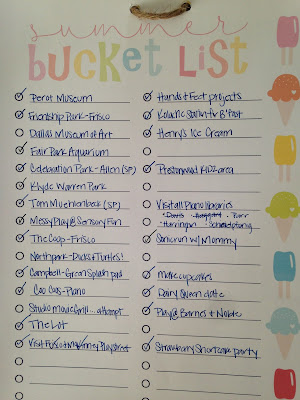 summer
bucket list
Perot Museum
Friendship Park-Frisco
Dallas Museum of Art
Fair Park Aquarium
Celebration Park-Allen (SP)
Klyde Warren Park
Tom Muehlenbeck (SP)
Messy Play @ Sensory Fun
The Coop-Frisco
Northpark-Ducks & Turtles!
Campbell-Green Splash pad
Coo Coos-Plano
Studio movie Grill... attempt
The Lot
Visit Play street
Hands & Feet projects
Kolache Station for B'fast
Henry's Ice Cream
Prestonwood KIDZ area
Visit all Plano libraries
Davis Haggard Parr
Harrington Schimelpfenig
Sonic run w/ Mommy
make cupcakes
Dairy Queen date
Play @ Barnes & Noble
Strawberry Shortcake party